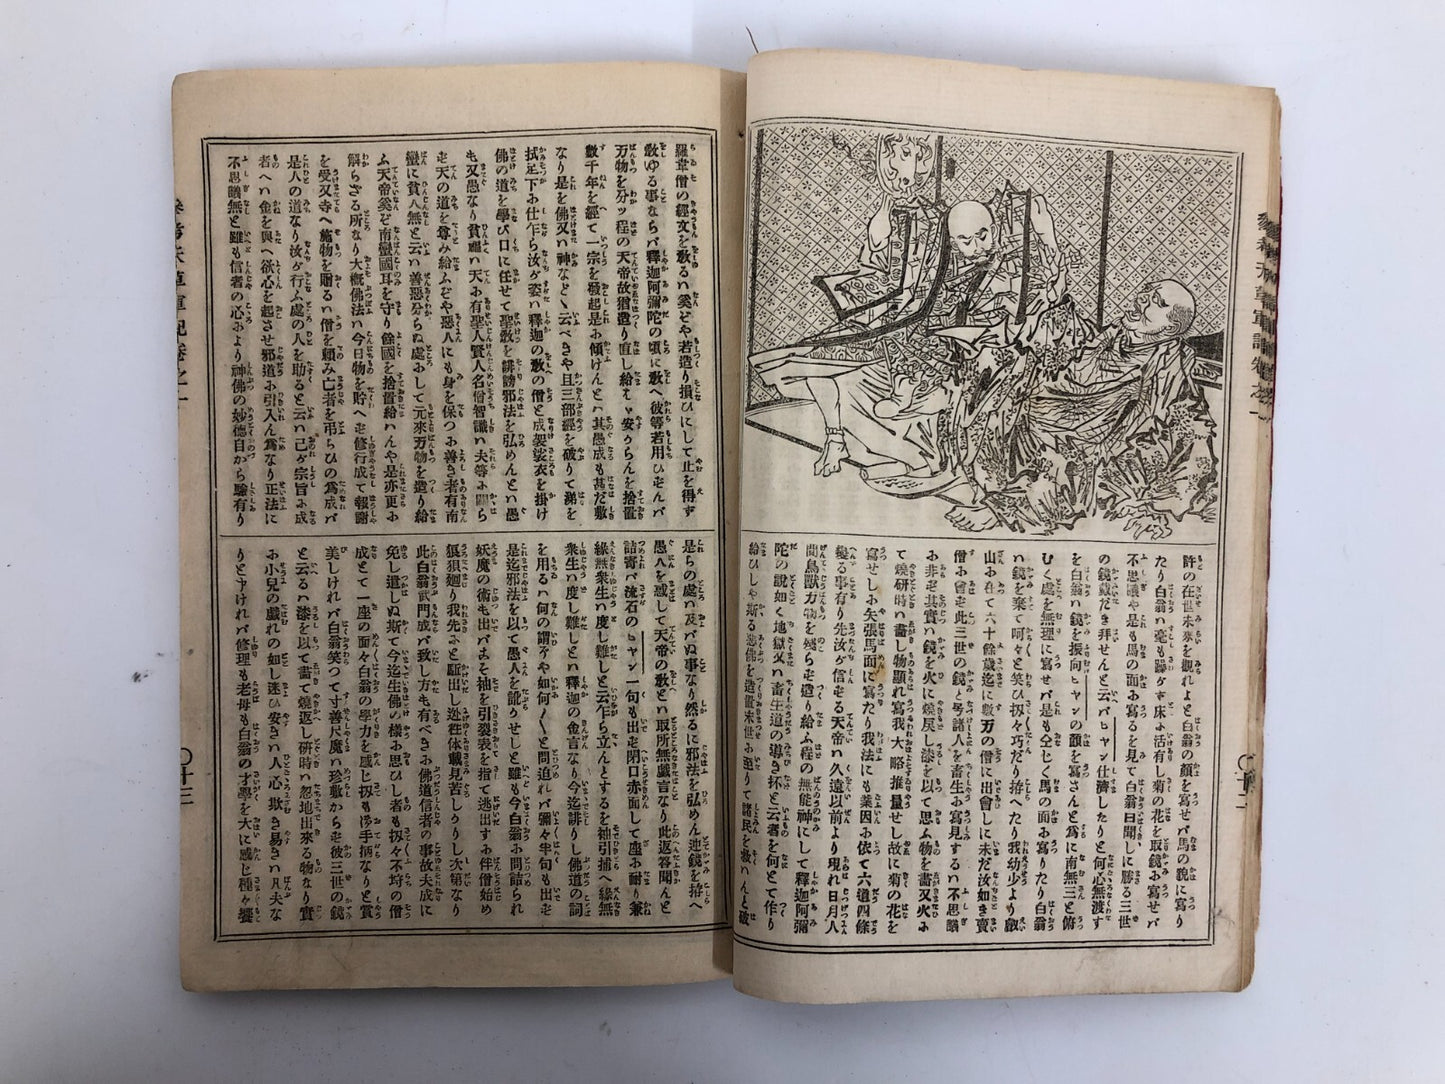 許の在世未來を觀れよと白翁の顏を寫せバ馬の貌に寫り
たり白翁ハ毫も躁ケず床ふ活有し菊の花を取鏡ふ寫せバ
不思議や是も馬の面ふ寫るを見て白翁曰聞しに勝る三世
の鏡戴だき拜せんと云バヒヤン仕濟したりと何心無渡す
を白翁ハ鏡を振向ヒヤンの顏を寫さんと爲に南無三と俯
むく處を無理に寫せバ是も仝じく馬の面ふ寫りたり白翁
ハ鏡を棄て呵々と笑ひ扨々巧だり拵へたり我幼少より叡
山ふ在て六十餘歳迄に數万の僧に出會しに未だ汝如き賣
僧ふ曾て此三世の鏡と号諸人を畜生ふ寫見するハ不思議
ふ非ず其實ハ鏡を火に燒戻し漆を以て思ふ物を畵又火ふ
て燒研時ハ畵し物顯れ寫我大略推量せし故に菊の花を
寫せしふ矢張馬面に寫たり我法にも業因ふ依て六道四條
變る事有り先汝ケ信ずる天帝ハ久遠以前より現れ日月人
間鳥獸万物を殘らず造り給ふ程の無能神にして釋迦阿彌
陀の說如く地獄又ハ畜生道の導き抔と云者を何とて作り
給ひしや斯る惡佛を造置末世ふ至りて諸民を救ハんと破
羅韋僧の經文を敎るハ奚ぞや若造り損ひにして止を得ず
敎ゆる事ならバ釋迦阿彌陀の頃に敎へ彼等若用ひずんバ
万物を分ツ程の天帝故猶造り直し給ハヾ安からんを捨置
數千年を經て一宗を發起是ふ傾けんとハ其愚成も甚だ敷
なり是を佛又ハ神などゝ云べきや且三部經を破りて涕を
拭足下ふ仕乍ら汝ケ姿ハ釋迦の敎の僧と成袈裟衣を掛け
佛の道を學び口に任せて聖敎を誹謗邪法を弘めんとハ愚
も又愚なり貧福ハ天ふ有聖人賢人名僧智識ハ夫等ふ關ら
ず天の道を尊み給ふぞや惡人にも身を保つふ善き者有南
蠻に貧人無と云ハ善惡分らぬ處ふして元來万物を造り給
ふ天帝奚ぞ南蠻國耳を守り餘國を捨置給ハんや是亦更ふ
解らざる所なり大概佛法ハ今日物を貯へず修行成て報謝
を受又寺へ施物を贈るハ僧を賴み亡者を弔らひの爲成バ
是人の道なり汝ケ行ふ處の人を助ると云ハ己ケ宗旨ふ成
者へハ金を與へ欲心を起させ邪道ふ引入ん爲なり正法に
不思議無と雖も信者の心ふより神佛の妙德自から驗有り
是らの處ハ及バぬ事なり然るに邪法を弘めん迚鏡を拵へ
愚人を惑して天帝の敎とハ取所無戯言なり此返答聞んと
詰寄バ流石のヒヤン一句も出ず閉口赤面して座ふ耐り兼
緣無衆生ハ度し難しと云乍ら立んとするを袖引捕へ緣無
衆生ハ度し難しとハ釋迦の金言なり今迄誹りし佛道の詞
を用るハ何の謂ぞや如何〳〵と問迫れバ彌々半句も出ず
是迄邪法を以て愚人を訛りせしと雖も今白翁ふ問詰られ
妖魔の術も出バこそ袖を引裂衣を捨て逃出すふ伴僧始め
狐狼廻り我先ふと駈出し迯粧体戴見苦しかりし次第なり
此白翁武門成バ致し方も有べきふ佛道信者の事故夫成に
免し追しぬ斯て今迄生佛の樣ふ思ひし者も扨々不埒の僧
成とて一座の面々白翁の學力を感じ扨も御手柄なりと賞
美しけれバ白翁笑つて寸善尺魔の珍敷からず彼三世の鏡
と云るハ漆を以て畵て燒返し研時ハ忽地出來る物なり實
ふ小兒の戯れの如し迷ひ安きハ人心欺き易きハ凡夫な
りとアけれバ修理も老母も白翁の才學を大に感じ種々饗
〇十二
〇十三